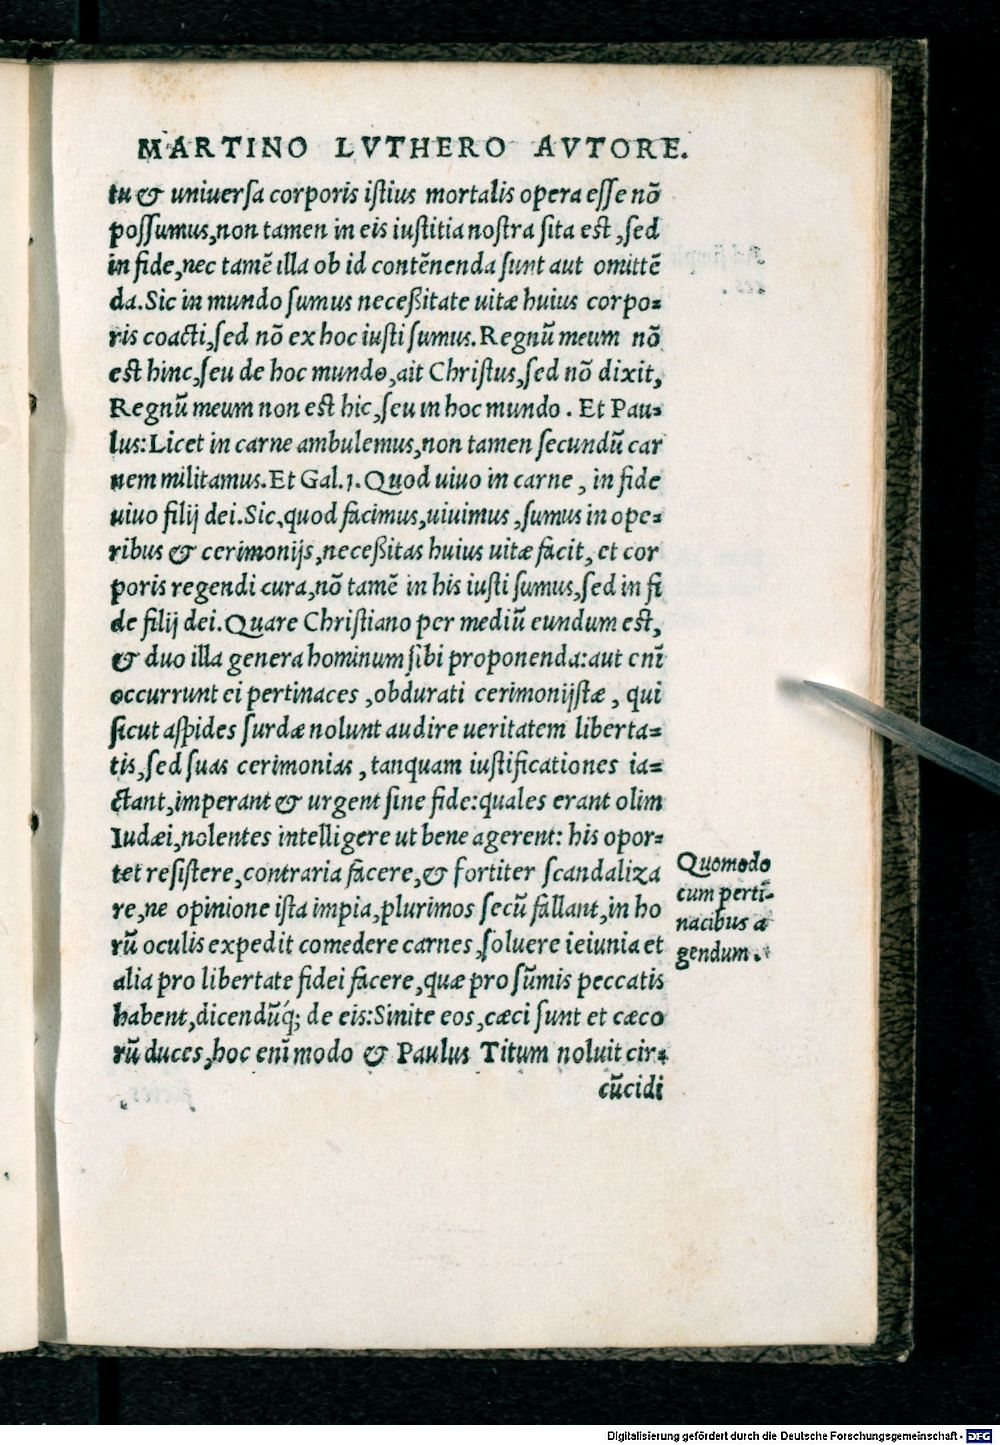 MARTINO LVTHERO AVTORE.
tu & uniuersa corporis istius mortalis opera esse nō
possumus, non tamen in eis iustitia nostra sita est, sed
in fide, nec tamē illa ob id contēnenda sunt aut omittē
da. Sic in mundo sumus neceßitate uitæ huius corpo=
ris coacti, sed nō ex hoc iusti sumus. Regnū meum nō
est hinc, seu de hoc mundo, ait Christus, sed nō dixit,
Regnū meum non est hic, seu in hoc mundo. Et Pau=
lus: Licet in carne ambulemus, non tamen secundū car
nem militamus. Et Gal. 1. Quod uiuo in carne, in fide
uiuo filij dei. Sic, quod facimus, uiuimus, sumus in ope=
ribus & cerimonijs, neceßitas huius uitæ facit, et cor
poris regendi cura, nō tamē in his iusti sumus, sed in fi
de filij dei. Quare Christiano per mediū eundum est,
& duo illa genera hominum sibi proponenda: aut enī
occurrunt ei pertinaces, obdurati cerimonijstæ, qui
sicut aspides surdæ nolunt audire ueritatem liberta=
tis, sed suas cerimonias, tanquam iustificationes ia=
ctant, imperant & urgent sine fide: quales erant olim
Iudæi, nolentes intelligere ut bene agerent: his opor=
tet resistere, contraria facere, & fortiter scandaliza
re, ne opinione ista impia, plurimos secū fallant, in ho
rū oculis expedit comedere carnes, soluere ieiunia et
alia pro libertate fidei facere, quæ pro sūmis peccatis
habent, dicendūq́; de eis: Sinite eos, cæci sunt et cæco
rū duces, hoc enī modo & Paulus Titum noluit cir=
cūcidi
Quomodo
cum perti=
nacibus a
gendum.
Digitalisierung gefördert durch die Deutsche Forschungsgemeinschaft - DFG